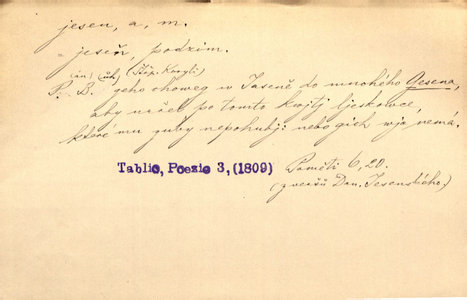 jesen, a, m.
= jeseň, podzim.
P. B. geho choweg w Jaseně do mnohého Gesena,
aby našel po tomto kwjtj ljeskowce,
které mu zuby nepohubj: nebo gich wjc nemá.
Tablic, Poezie 3, (1809)
Paměti 6, 20.
(z veršů Dan. Jesenského.)